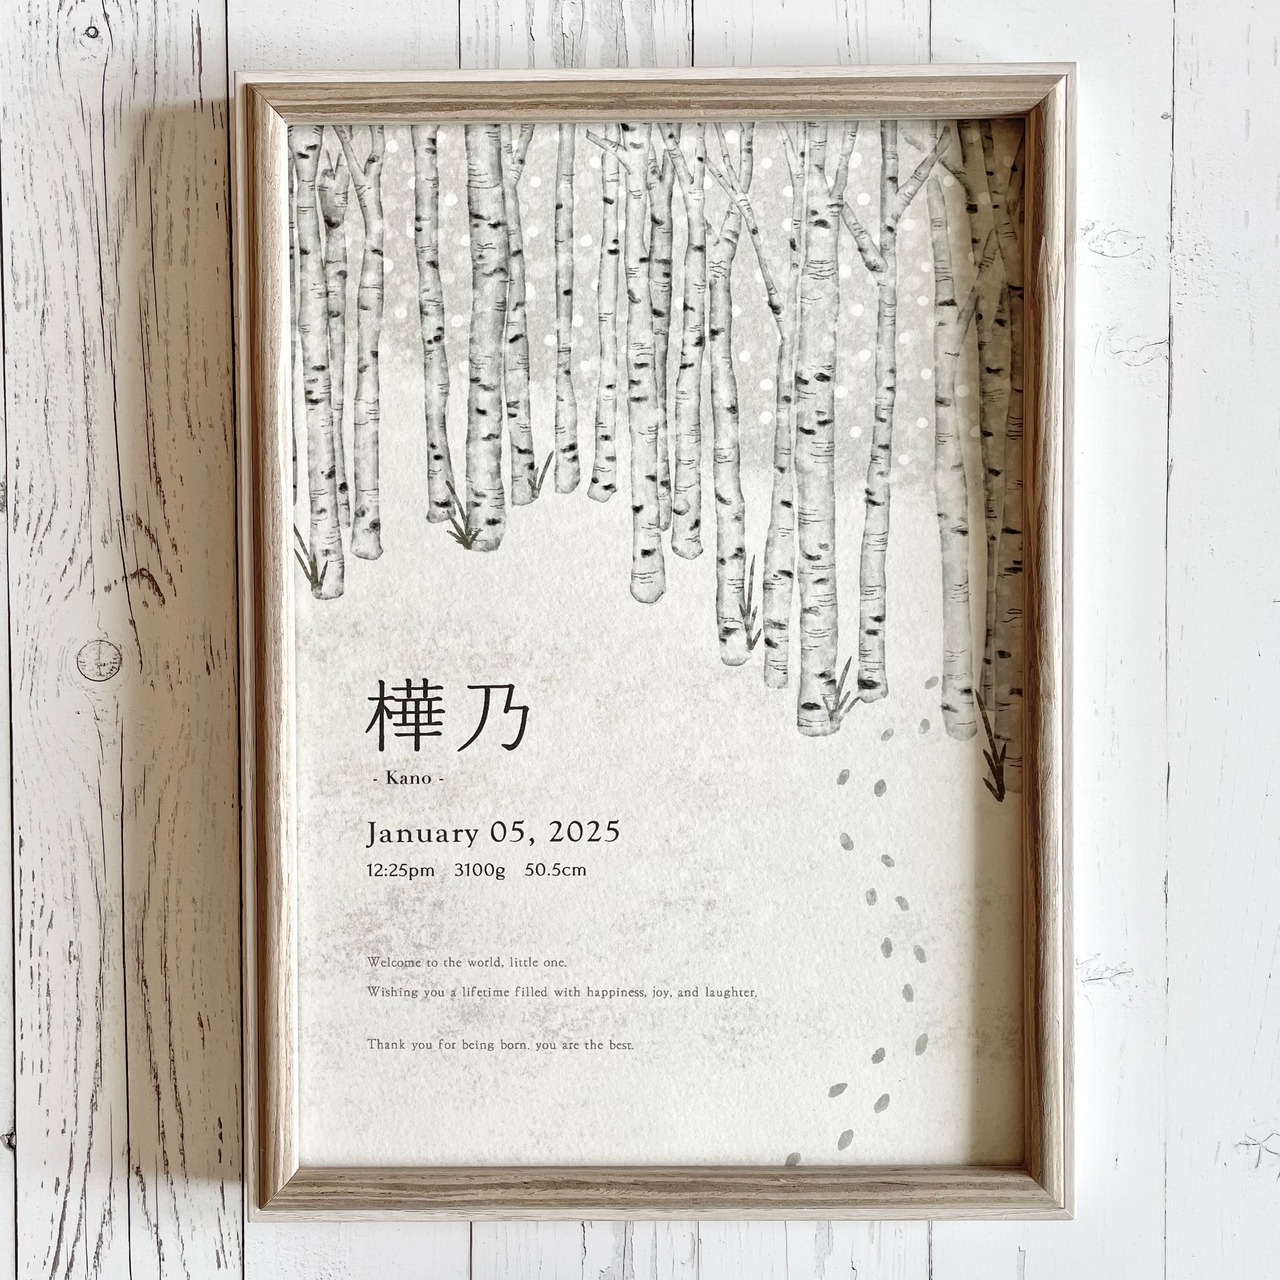 樺乃
- Kano -
January 05, 2025
12:25pm 3100g 50.5cm
Welcome to the world, little one.
Wishing you a lifetime filled with happiness, joy, and laughter.
Thank you for being born. you are the best.